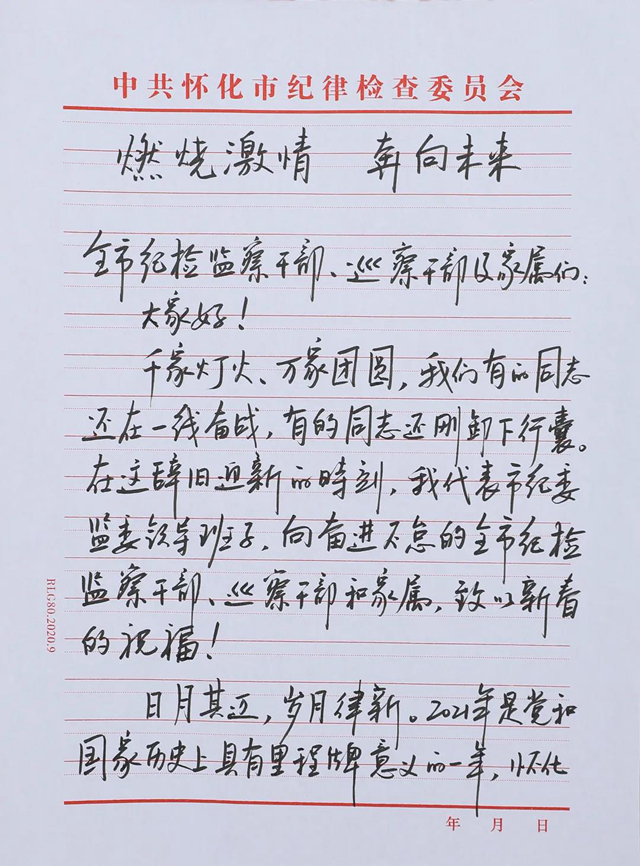 中共怀化市纪律检查委员会
燃烧激情 奔向未来
全市纪检监察干部、巡察干部及家属们：
大家好！
千家灯火、万家团圆，我们有的同志
还在一线奋战，有的同志还刚卸下行囊。
在这辞旧迎新的时刻，我代表市纪委
监委领导班子，向奋进不怠的全市纪检
监察干部、巡察干部和家属，致以新春
的祝福！
日月其迈，岁月律新。2021年是党和
国家历史上具有里程牌意义的一年，怀化
RLG80.2020.9
年 月 日